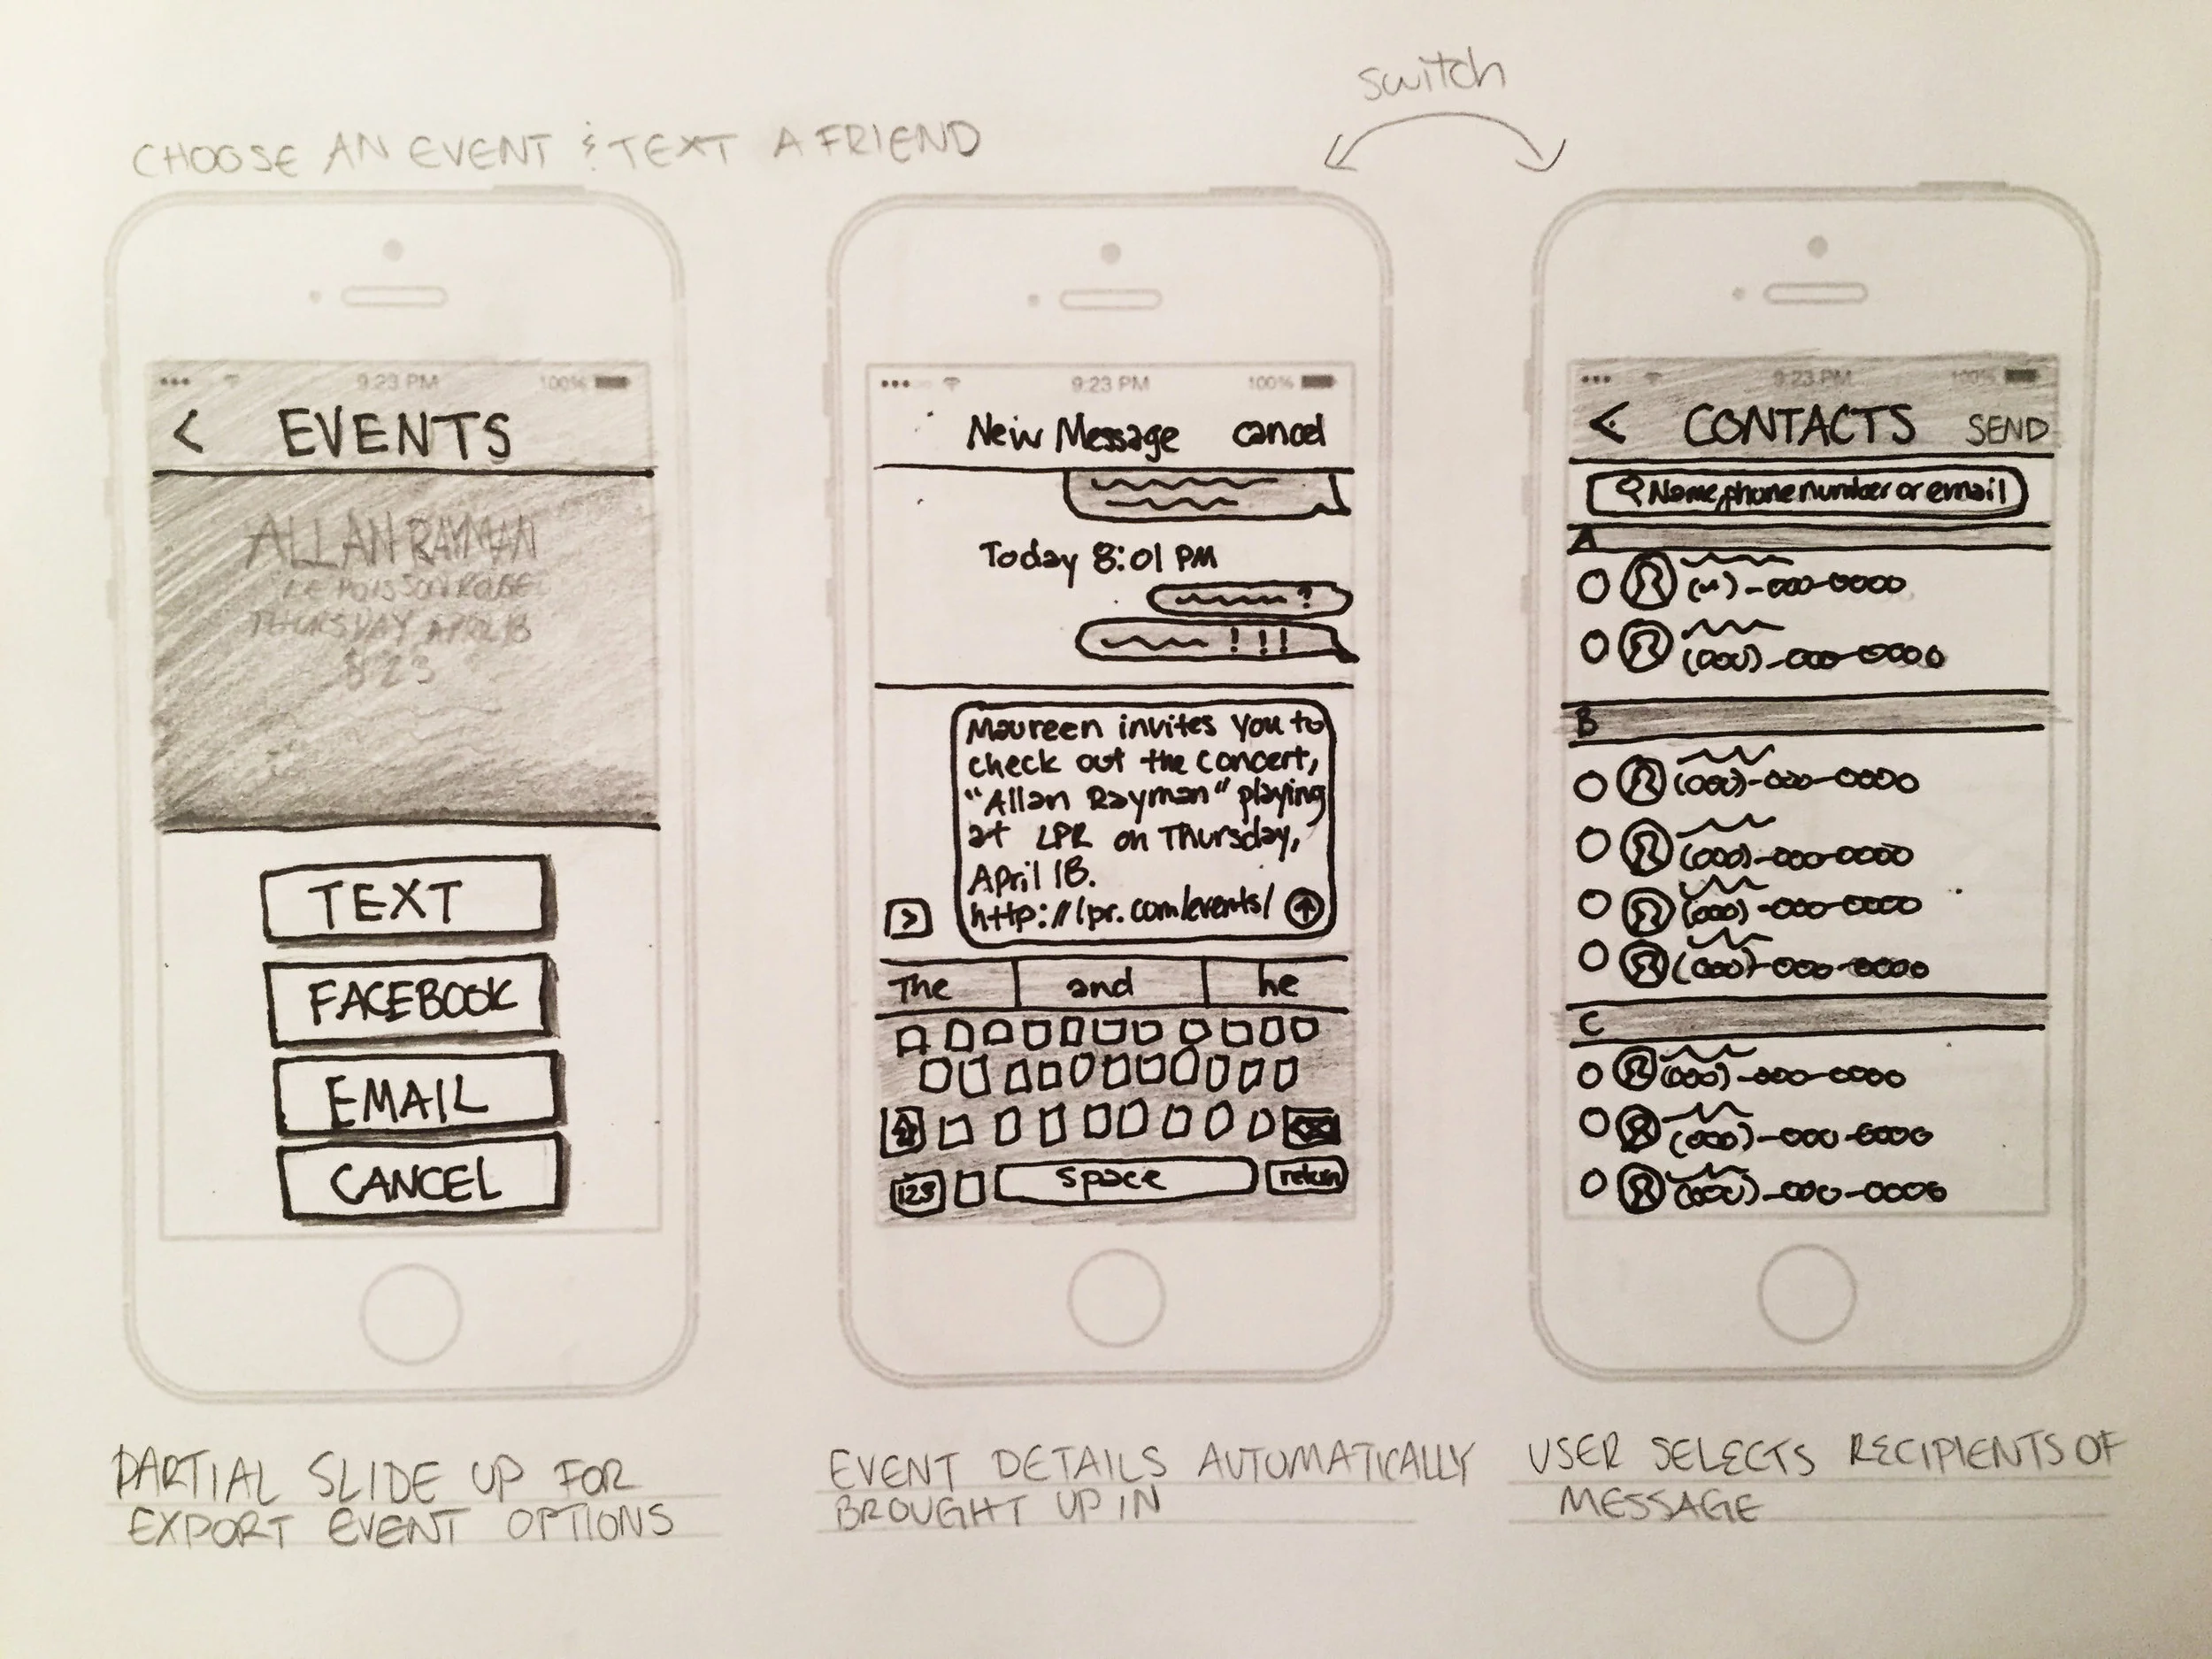 switch
CHOOSE AN EVENT & TEXT A FRIEND
9:23 PM 100%
< EVENTS
ALLAN RAYMAN
LE POISSON ROUGE
THURSDAY APRIL 18
$23
TEXT
FACEBOOK
EMAIL
CANCEL
PARTIAL SLIDE UP FOR
EXPORT EVENT OPTIONS
9:23 PM 100%
New Message cancel
Today 8:01 PM
?
!!!
Maureen invites you to
check out the concert,
"Allan Rayman" playing
at LPR on Thursday,
April 18.
http://lpr.com/events/
>
The and he
123 space return
EVENT DETAILS AUTOMATICALLY
BROUGHT UP IN
9:23 PM 100%
< CONTACTS SEND
Name, phone number or email
A
(~)-000-0000
(000)-000-0000
B
(000)-000-0000
(000)-000-0000
(000)-000-0000
(000)-000-0000
C
(000)-000-0000
(000)-000-0000
(000)-000-0000
USER SELECTS RECIPIENTS OF
MESSAGE